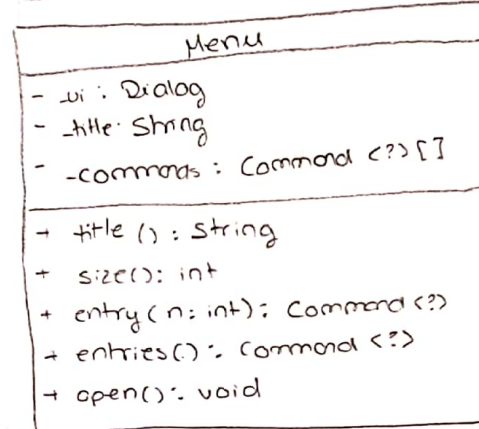 Menu
- _ui : Dialog
- _title : String
- _commands : Command <?> []
+ title () : String
+ size(): int
+ entry(n: int): Command <?>
+ entries() : Command <?>
+ open() : void